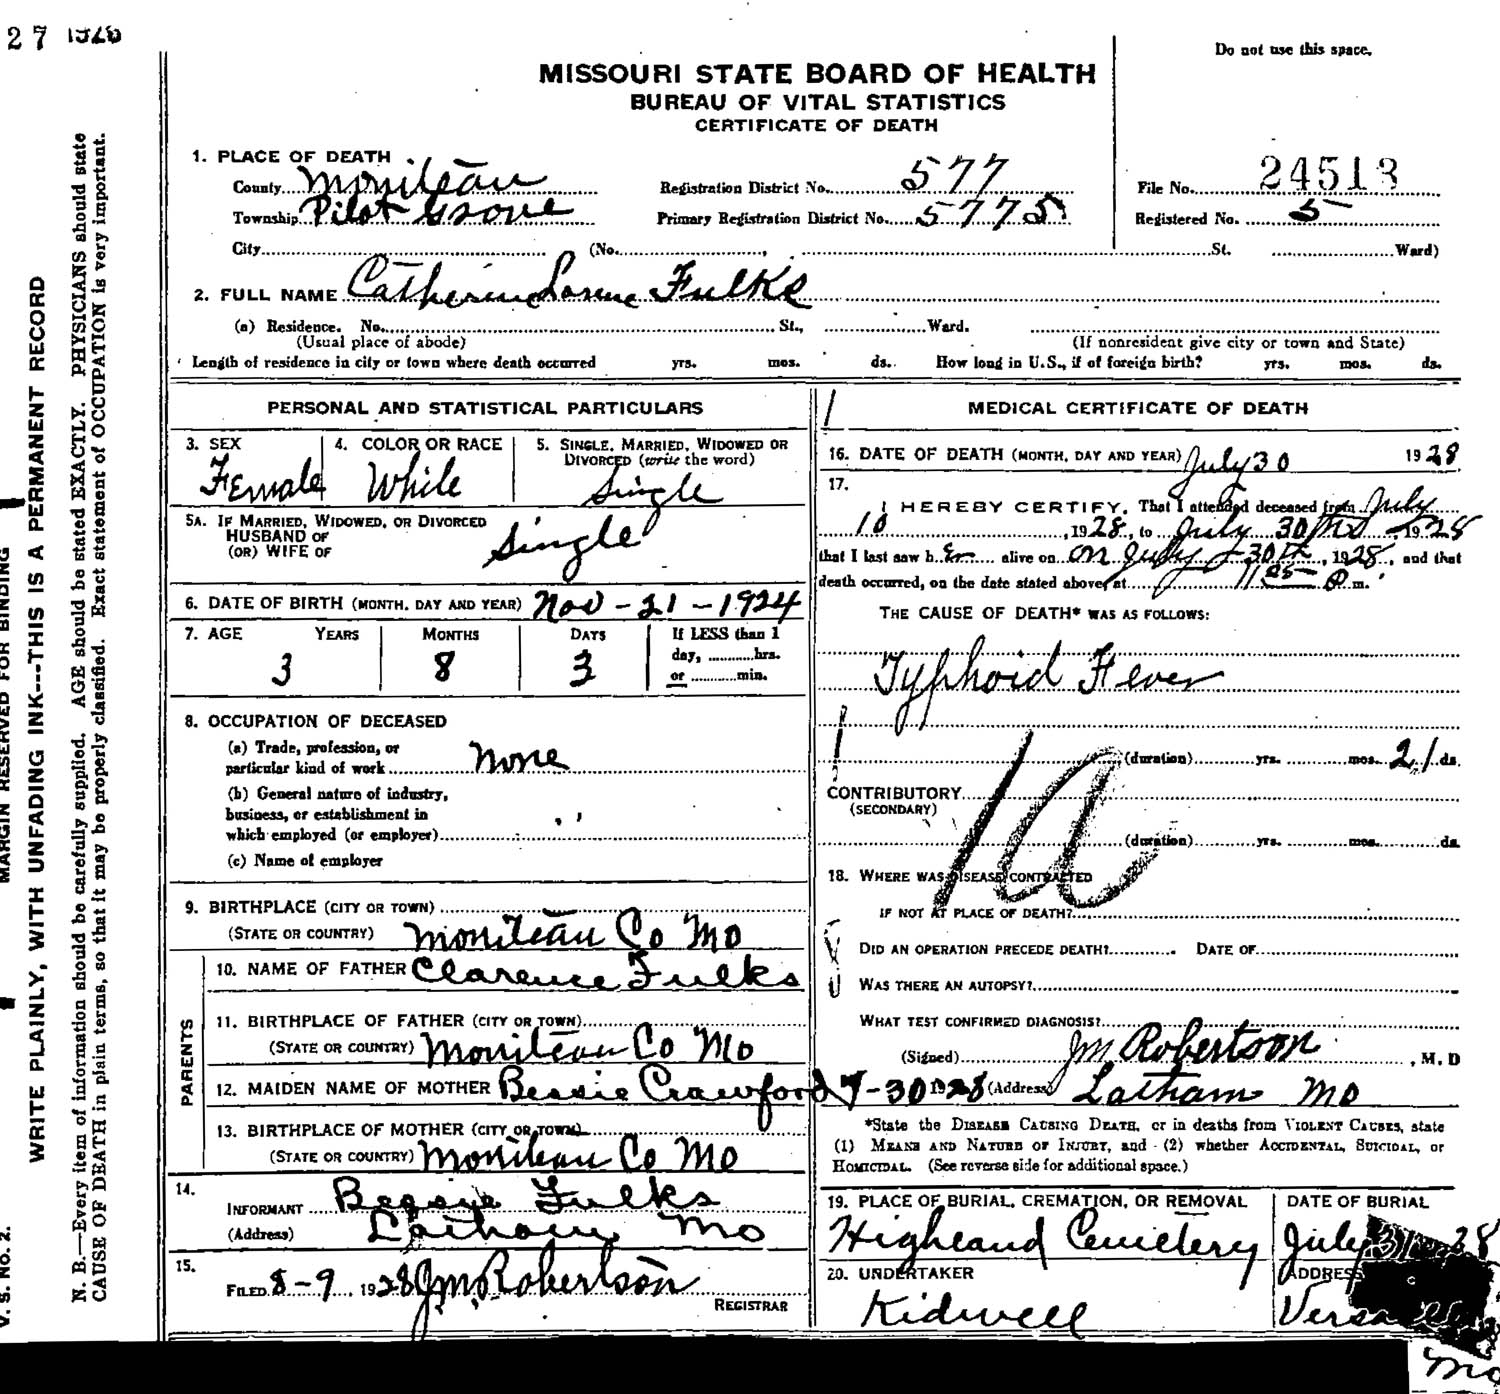 27 1928
Do not use this space.
MISSOURI STATE BOARD OF HEALTH
BUREAU OF VITAL STATISTICS
CERTIFICATE OF DEATH
1. PLACE OF DEATH
County Moniteau Registration District No. 577 File No. 24513
Township Pilot Grove Primary Registration District No. 5775 Registered No. 5
City (No. , St. Ward)
2. FULL NAME Catherine Lorene Fulks
(a) Residence. No. St., Ward.
(Usual place of abode) (If nonresident give city or town and State)
Length of residence in city or town where death occurred yrs. mos. ds. How long in U.S., if of foreign birth? yrs. mos. ds.
PERSONAL AND STATISTICAL PARTICULARS
3. SEX 4. COLOR OR RACE 5. SINGLE, MARRIED, WIDOWED OR
DIVORCED (write the word)
Female White Single
5A. IF MARRIED, WIDOWED, OR DIVORCED
HUSBAND OF
(OR) WIFE OF Single
6. DATE OF BIRTH (MONTH, DAY AND YEAR) Nov - 21 - 1924
7. AGE YEARS MONTHS DAYS If LESS than 1
day, hrs.
3 8 3 or min.
8. OCCUPATION OF DECEASED
(a) Trade, profession, or
particular kind of work None
(b) General nature of industry,
business, or establishment in
which employed (or employer)
(c) Name of employer
9. BIRTHPLACE (CITY OR TOWN)
(STATE OR COUNTRY) Moniteau Co Mo
PARENTS
10. NAME OF FATHER Clarence Fulks
11. BIRTHPLACE OF FATHER (CITY OR TOWN)
(STATE OR COUNTRY) Moniteau Co Mo
12. MAIDEN NAME OF MOTHER Bessie Crawford
13. BIRTHPLACE OF MOTHER (CITY OR TOWN)
(STATE OR COUNTRY) Moniteau Co Mo
14.
INFORMANT Bessie Fulks
(Address) Latham Mo
15.
FILED 8-9, 1928 J M Robertson
REGISTRAR
1
MEDICAL CERTIFICATE OF DEATH
16. DATE OF DEATH (MONTH, DAY AND YEAR) July 30 1928
17.
I HEREBY CERTIFY, That I attended deceased from July
10, 1928, to July 30th, 1928
that I last saw her alive on on July 30th, 1928, and that
death occurred, on the date stated above, at 11 P m.
THE CAUSE OF DEATH* WAS AS FOLLOWS:
Typhoid Fever
(duration) yrs. mos. 21 ds.
CONTRIBUTORY
(SECONDARY)
(duration) yrs. mos. ds.
18. WHERE WAS DISEASE CONTRACTED
IF NOT AT PLACE OF DEATH?
DID AN OPERATION PRECEDE DEATH? DATE OF
WAS THERE AN AUTOPSY?
WHAT TEST CONFIRMED DIAGNOSIS?
(Signed) J M Robertson, M. D
7-30 1928 (Address) Latham Mo
*State the DISEASE CAUSING DEATH, or in deaths from VIOLENT CAUSES, state
(1) MEANS AND NATURE OF INJURY, and (2) whether ACCIDENTAL, SUICIDAL, or
HOMICIDAL. (See reverse side for additional space.)
19. PLACE OF BURIAL, CREMATION, OR REMOVAL DATE OF BURIAL
Highland Cemetery July 31 28
20. UNDERTAKER ADDRESS
Kidwell
Mo
MARGIN RESERVED FOR BINDING
WRITE PLAINLY, WITH UNFADING INK---THIS IS A PERMANENT RECORD
N. B.—Every item of information should be carefully supplied. AGE should be stated EXACTLY. PHYSICIANS should state
CAUSE OF DEATH in plain terms, so that it may be properly classified. Exact statement of OCCUPATION is very important.
V. S. No. 2.